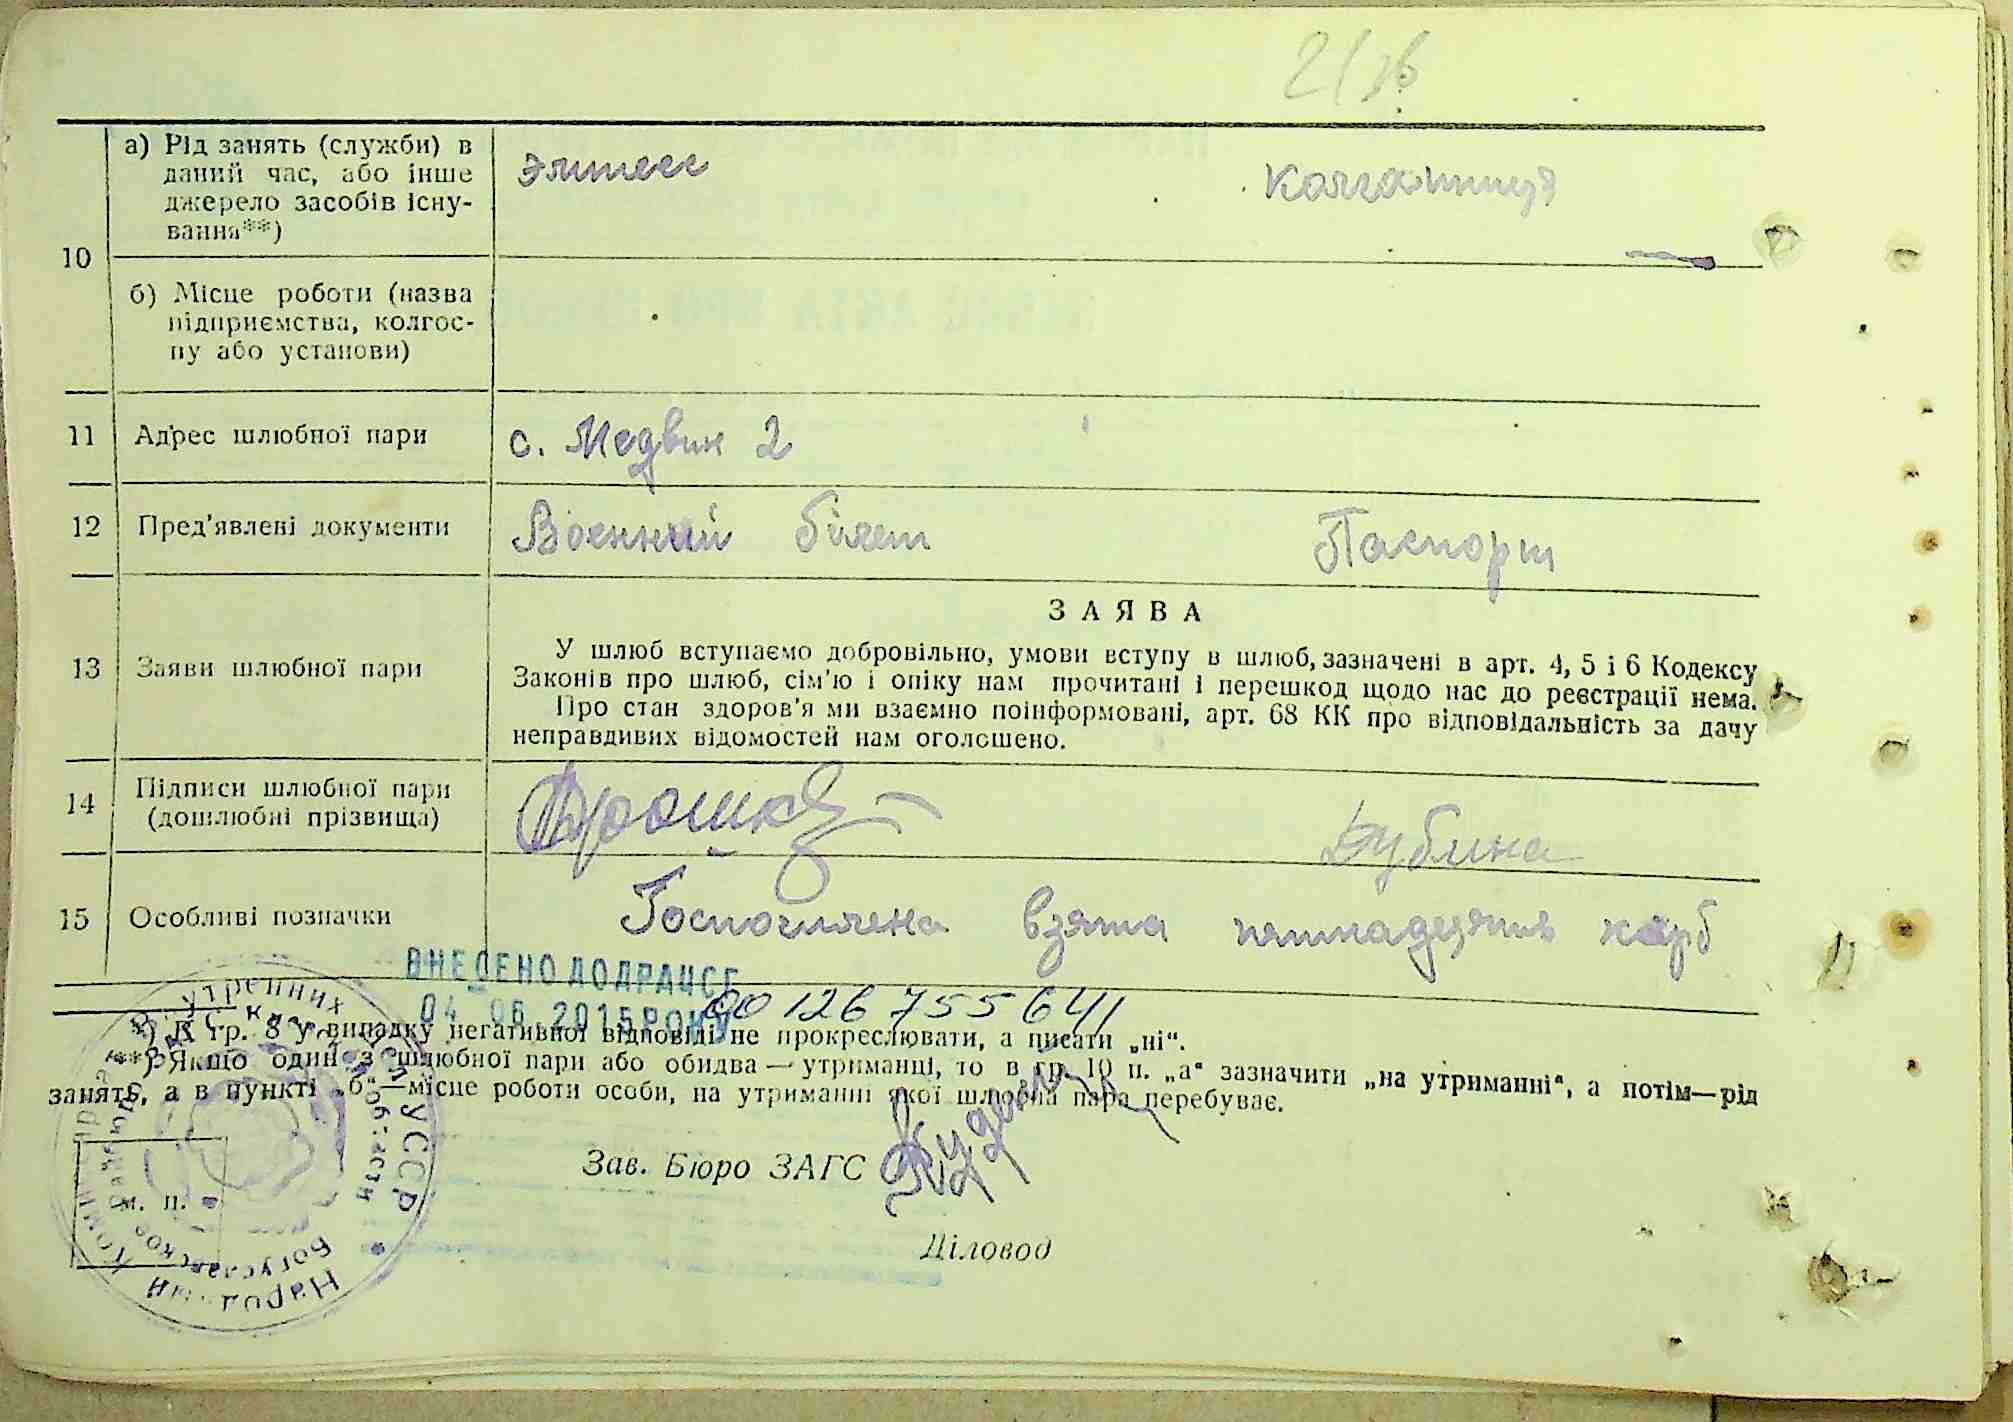 10
а) Рід занять (служби) в
даний час, або інше
джерело засобів існу-
вання**)
колгоспниця
б) Місце роботи (назва
підприємства, колгос-
пу або установи)
11 Адрес шлюбної пари с. Медвин 2
12 Пред'явлені документи Воєнний білет Паспорт
ЗАЯВА
13 Заяви шлюбної пари
У шлюб вступаємо добровільно, умови вступу в шлюб, зазначені в арт. 4, 5 і 6 Кодексу
Законів про шлюб, сім'ю і опіку нам прочитані і перешкод щодо нас до реєстрації нема.
Про стан здоров'я ми взаємно поінформовані, арт. 68 КК про відповідальність за дачу
неправдивих відомостей нам оголошено.
14 Підписи шлюбної пари
(дошлюбні прізвища)
Дубина
15 Особливі позначки взята пятнадецять карб
ВНЕСЕНО ДО ДРАЦСГ
04 06 2015 РОКУ
00126755641
*) К гр. 8 у випадку негативної відповіді не прокреслювати, а писати „ні“.
**) Якщо один з шлюбної пари або обидва — утриманці, то в гр. 10 п. „а“ зазначити „на утриманні“, а потім—рід
занять, а в пункті „б“—місце роботи особи, на утриманні якої шлюбна пара перебуває.
Зав. Бюро ЗАГС
м. п.
Діловод
Народный Комиссариат Внутренних УССР
Богуславское области